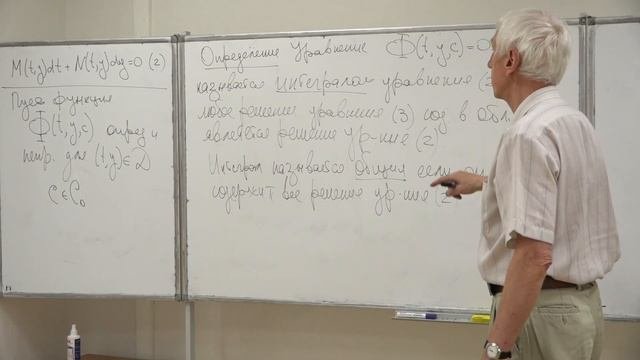 M(t,y)dt + N(t,y)dy=0 (2)
Пусть функция
Φ(t,y,c) опред и
непр. для (t,y)∈D
c∈C₀
Определение Уравнение Φ(t,y,c)=0
называется интегралом уравнения (2
любое решение уравнения (3) сод в обл
является решение ур-ние (2)
Интеграл называется общим если он
содержит все решение ур-ние (2